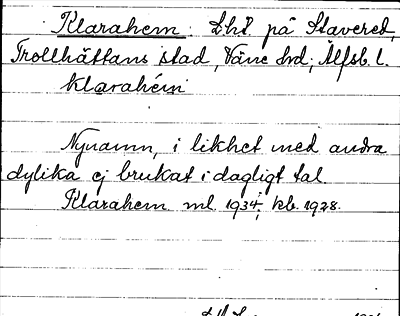 Klarahem Lht på Stavered,
Trollhättans stad, Väne hd, Älfsb. l.
klarahém
Nynamn, i likhet med andra
dylika ej brukat i dagligt tal.
Klarahem ml 1934, kb. 1928.